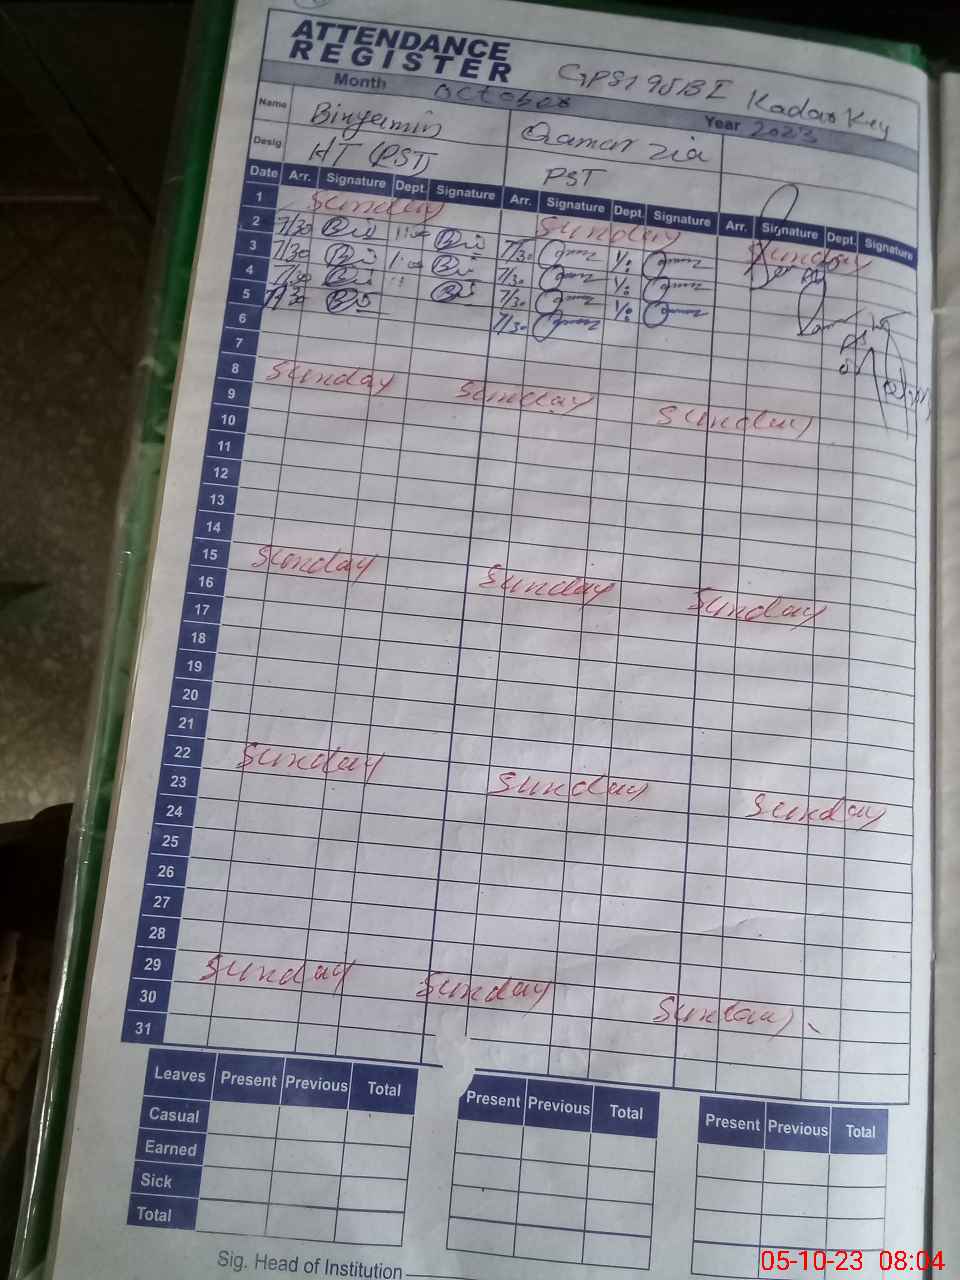 ATTENDANCE
REGISTER
Month October Year 2023
Name Binyamin Qamar Zia
Desig HT (PST) PST
Date Arr. Signature Dept. Signature Arr. Signature Dept. Signature Arr. Signature Dept. Signature
1 Sunday Sunday Sunday
2 7/30 7/30
3 7/30 7/30
4 7/30 7/30
5 7/30 7/30
6
7
8 Sunday Sunday Sunday
9
10
11
12
13
14
15 Sunday Sunday Sunday
16
17
18
19
20
21
22 Sunday Sunday Sunday
23
24
25
26
27
28
29 Sunday Sunday Sunday
30
31
Leaves Present Previous Total Present Previous Total Present Previous Total
Casual
Earned
Sick
Total
Sig. Head of Institution
05-10-23 08:04